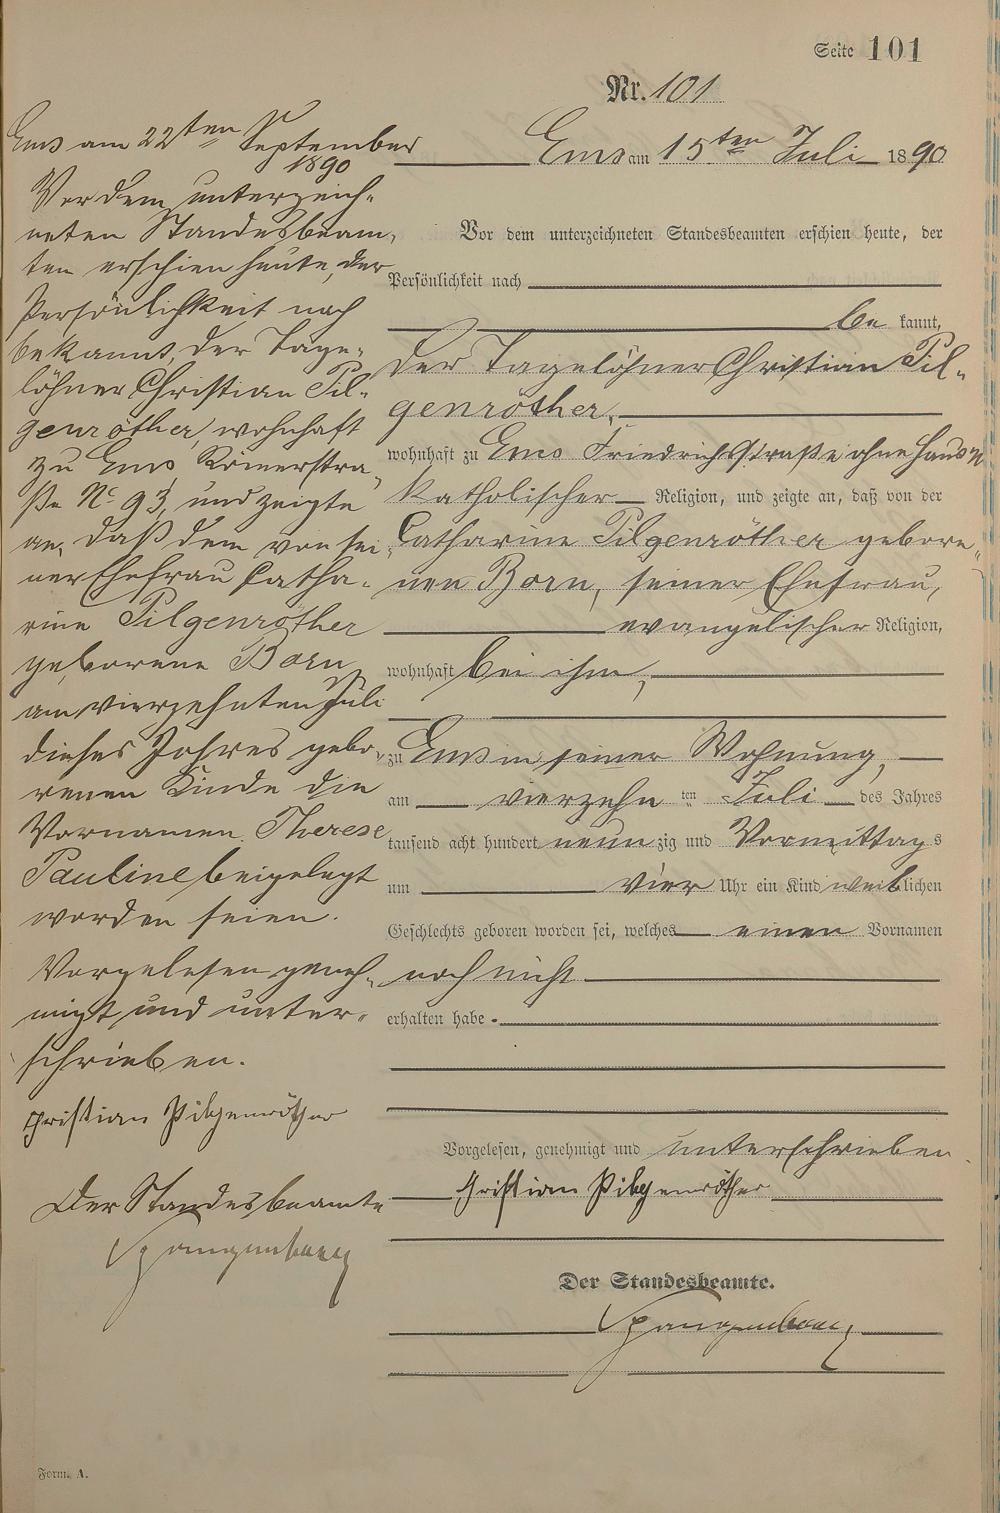 Seite 101
Nr. 101
Ems am 15ten Juli 1890
Vor dem unterzeichneten Standesbeamten erschien heute, der
Persönlichkeit nach
be kannt,
der Tagelöhner Christian Pil-
genröther,
wohnhaft zu Ems Friedrichstraße ohne Haus N
katholischer Religion, und zeigte an, daß von der
Catharine Pilgenröther gebore-
nen Born, seiner Ehefrau,
evangelischer Religion,
wohnhaft bei ihm,
zu Ems in seiner Wohnung,
am vierzehn ten Juli des Jahres
tausend acht hundert neun zig und Vormittags
um vier Uhr ein Kind weiblichen
Geschlechts geboren worden sei, welches einen Vornamen
noch nicht
erhalten habe.
Vorgelesen, genehmigt und unterschrieben
Christian Pilgenröther
Der Standesbeamte.
Spangenberg
Ems am 22ten September
1890
Vor dem unterzeich-
neten Standesbeam-
ten erschien heute, der
Persönlichkeit nach
bekannt, der Tage-
löhner Christian Pil-
genröther, wohnhaft
zu Ems Römerstra-
ße No 93, und zeigte
an, daß dem von sei-
ner Ehefrau Catha-
rine Pilgenröther
geborene Born
am vierzehnten Juli
dieses Jahres gebo-
renen Kinde die
Vornamen Therese
Pauline beigelegt
worden seien.
Vorgelesen geneh-
migt und unter-
schrieben.
Christian Pilgenröther
Der Standesbeamte
Spangenberg
Form. A.